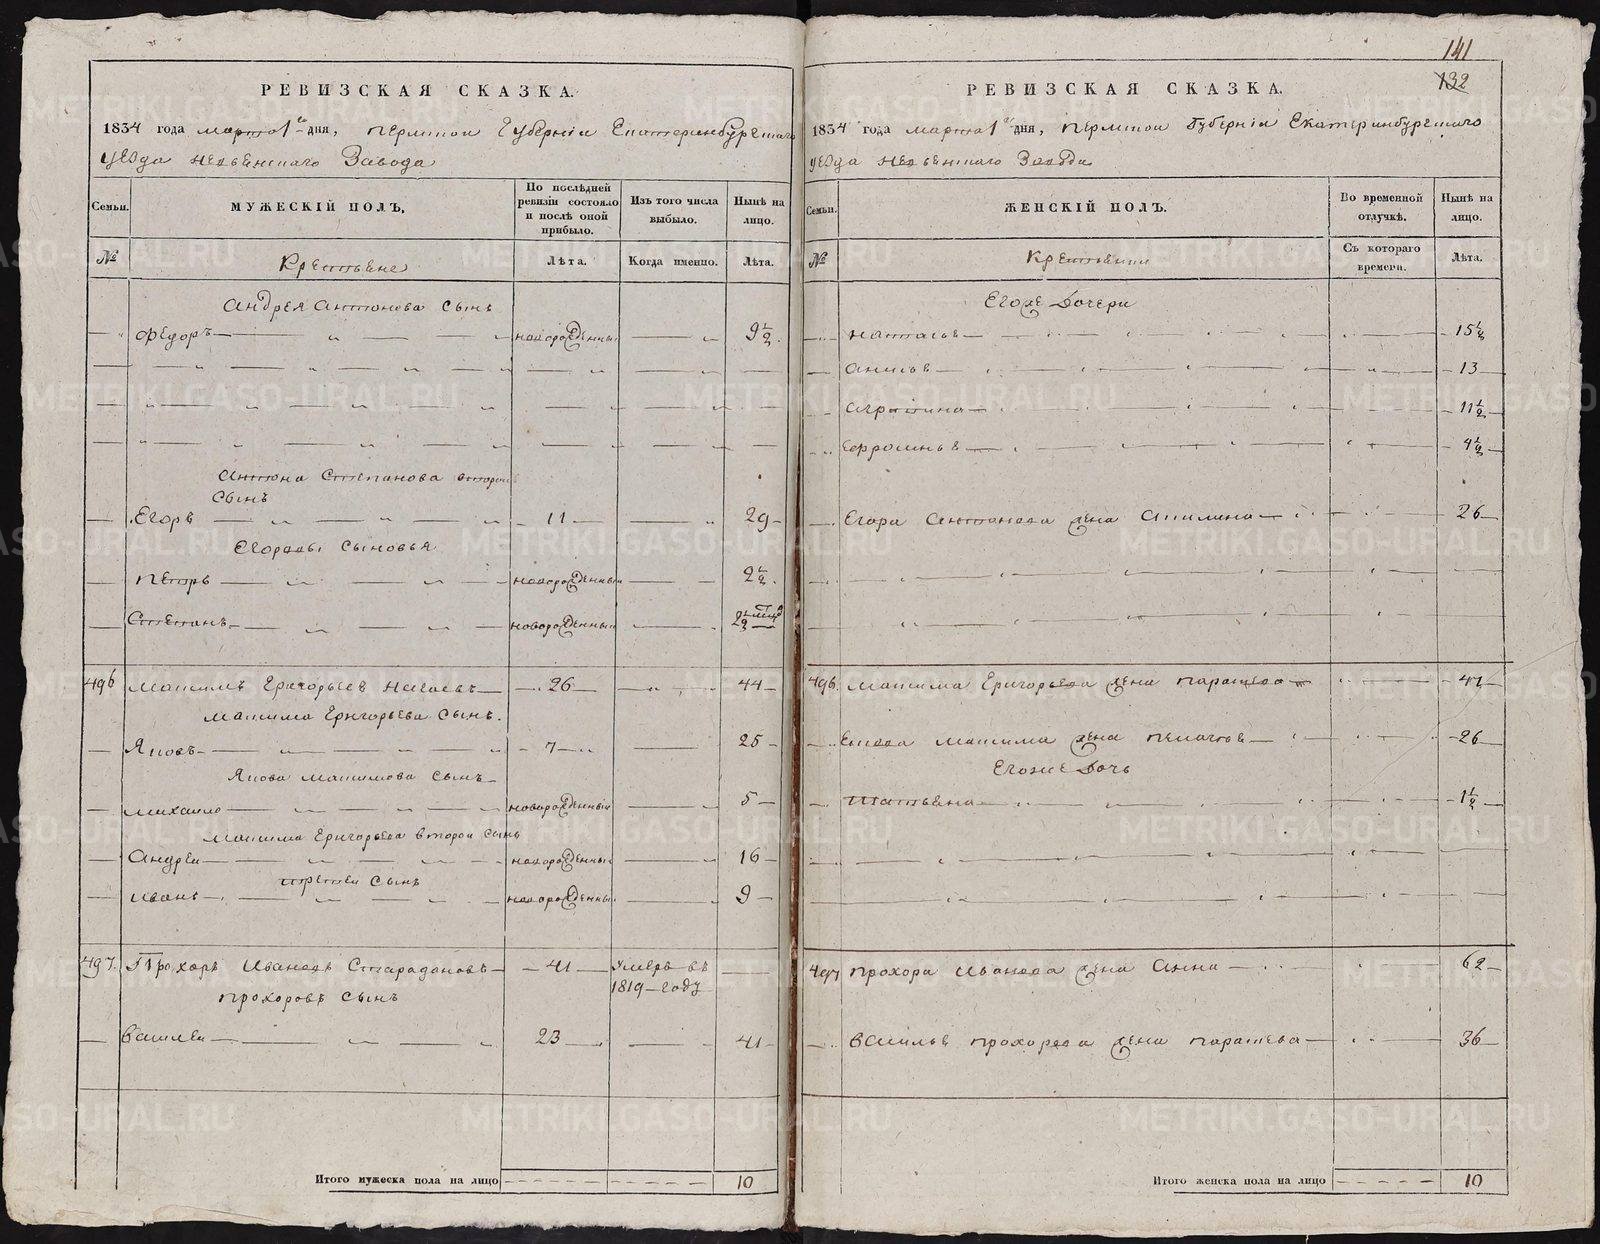 141
132
РЕВИЗСКАЯ СКАЗКА.
1834 года марта 1го дня, Пермской Губернiи Екатеринбургскаго
уезда Невьянскаго Завода
Семьи.
МУЖЕСКIЙ ПОЛЪ,
По послѣдней ревизiи состояло и послѣ оной прибыло.
Изъ того числа выбыло.
Нынѣ на лицо.
№
Крестьяне
Лѣта.
Когда именно.
Лѣта.
Андрея Антонова сынъ
Федоръ новорожденный 9½
Антона Степанова второй
сынъ
Егоръ 11 29
Егоровы сыновья
Петръ новорожденный 2½
Степанъ новорожденный
496 Максимъ Григорьевъ 26 44
Максима Григорьева сынъ
Яковъ 7 25
Якова Максимова сынъ
Михайло новорожденный 5
Максима Григорьева второй сынъ
Андрей новорожденный 16
третей сынъ
Иванъ новорожденный 9
497. Прохоръ Ивановъ 41 умеръ въ
1819 году
Прохоровъ сынъ
Василей 23 41
Итого мужеска пола на лицо 10
РЕВИЗСКАЯ СКАЗКА.
1834 года марта 1го дня, Пермской Губернiи Екатеринбургскаго
уезда Невьянскаго Завода
Семьи.
ЖЕНСКIЙ ПОЛЪ.
Во временной отлучкѣ.
Нынѣ на лицо.
№
Крестьянки
Съ котораго времени.
Лѣта.
Егоже дочери
Наталья 15½
Анисья 13
Аграпина 11½
Ефросинья 4½
Егора Антонова жена Акилина 26
496. Максима Григорьева жена Парасковья 47
Якова Максима жена Пелагея 26
Егоже дочь
Татьяна 1½
497 Прохора Иванова жена Анна 62
Василья Прохорова жена Парасковья 36
Итого женска пола на лицо 10
METRIKI.GASO-URAL.RU